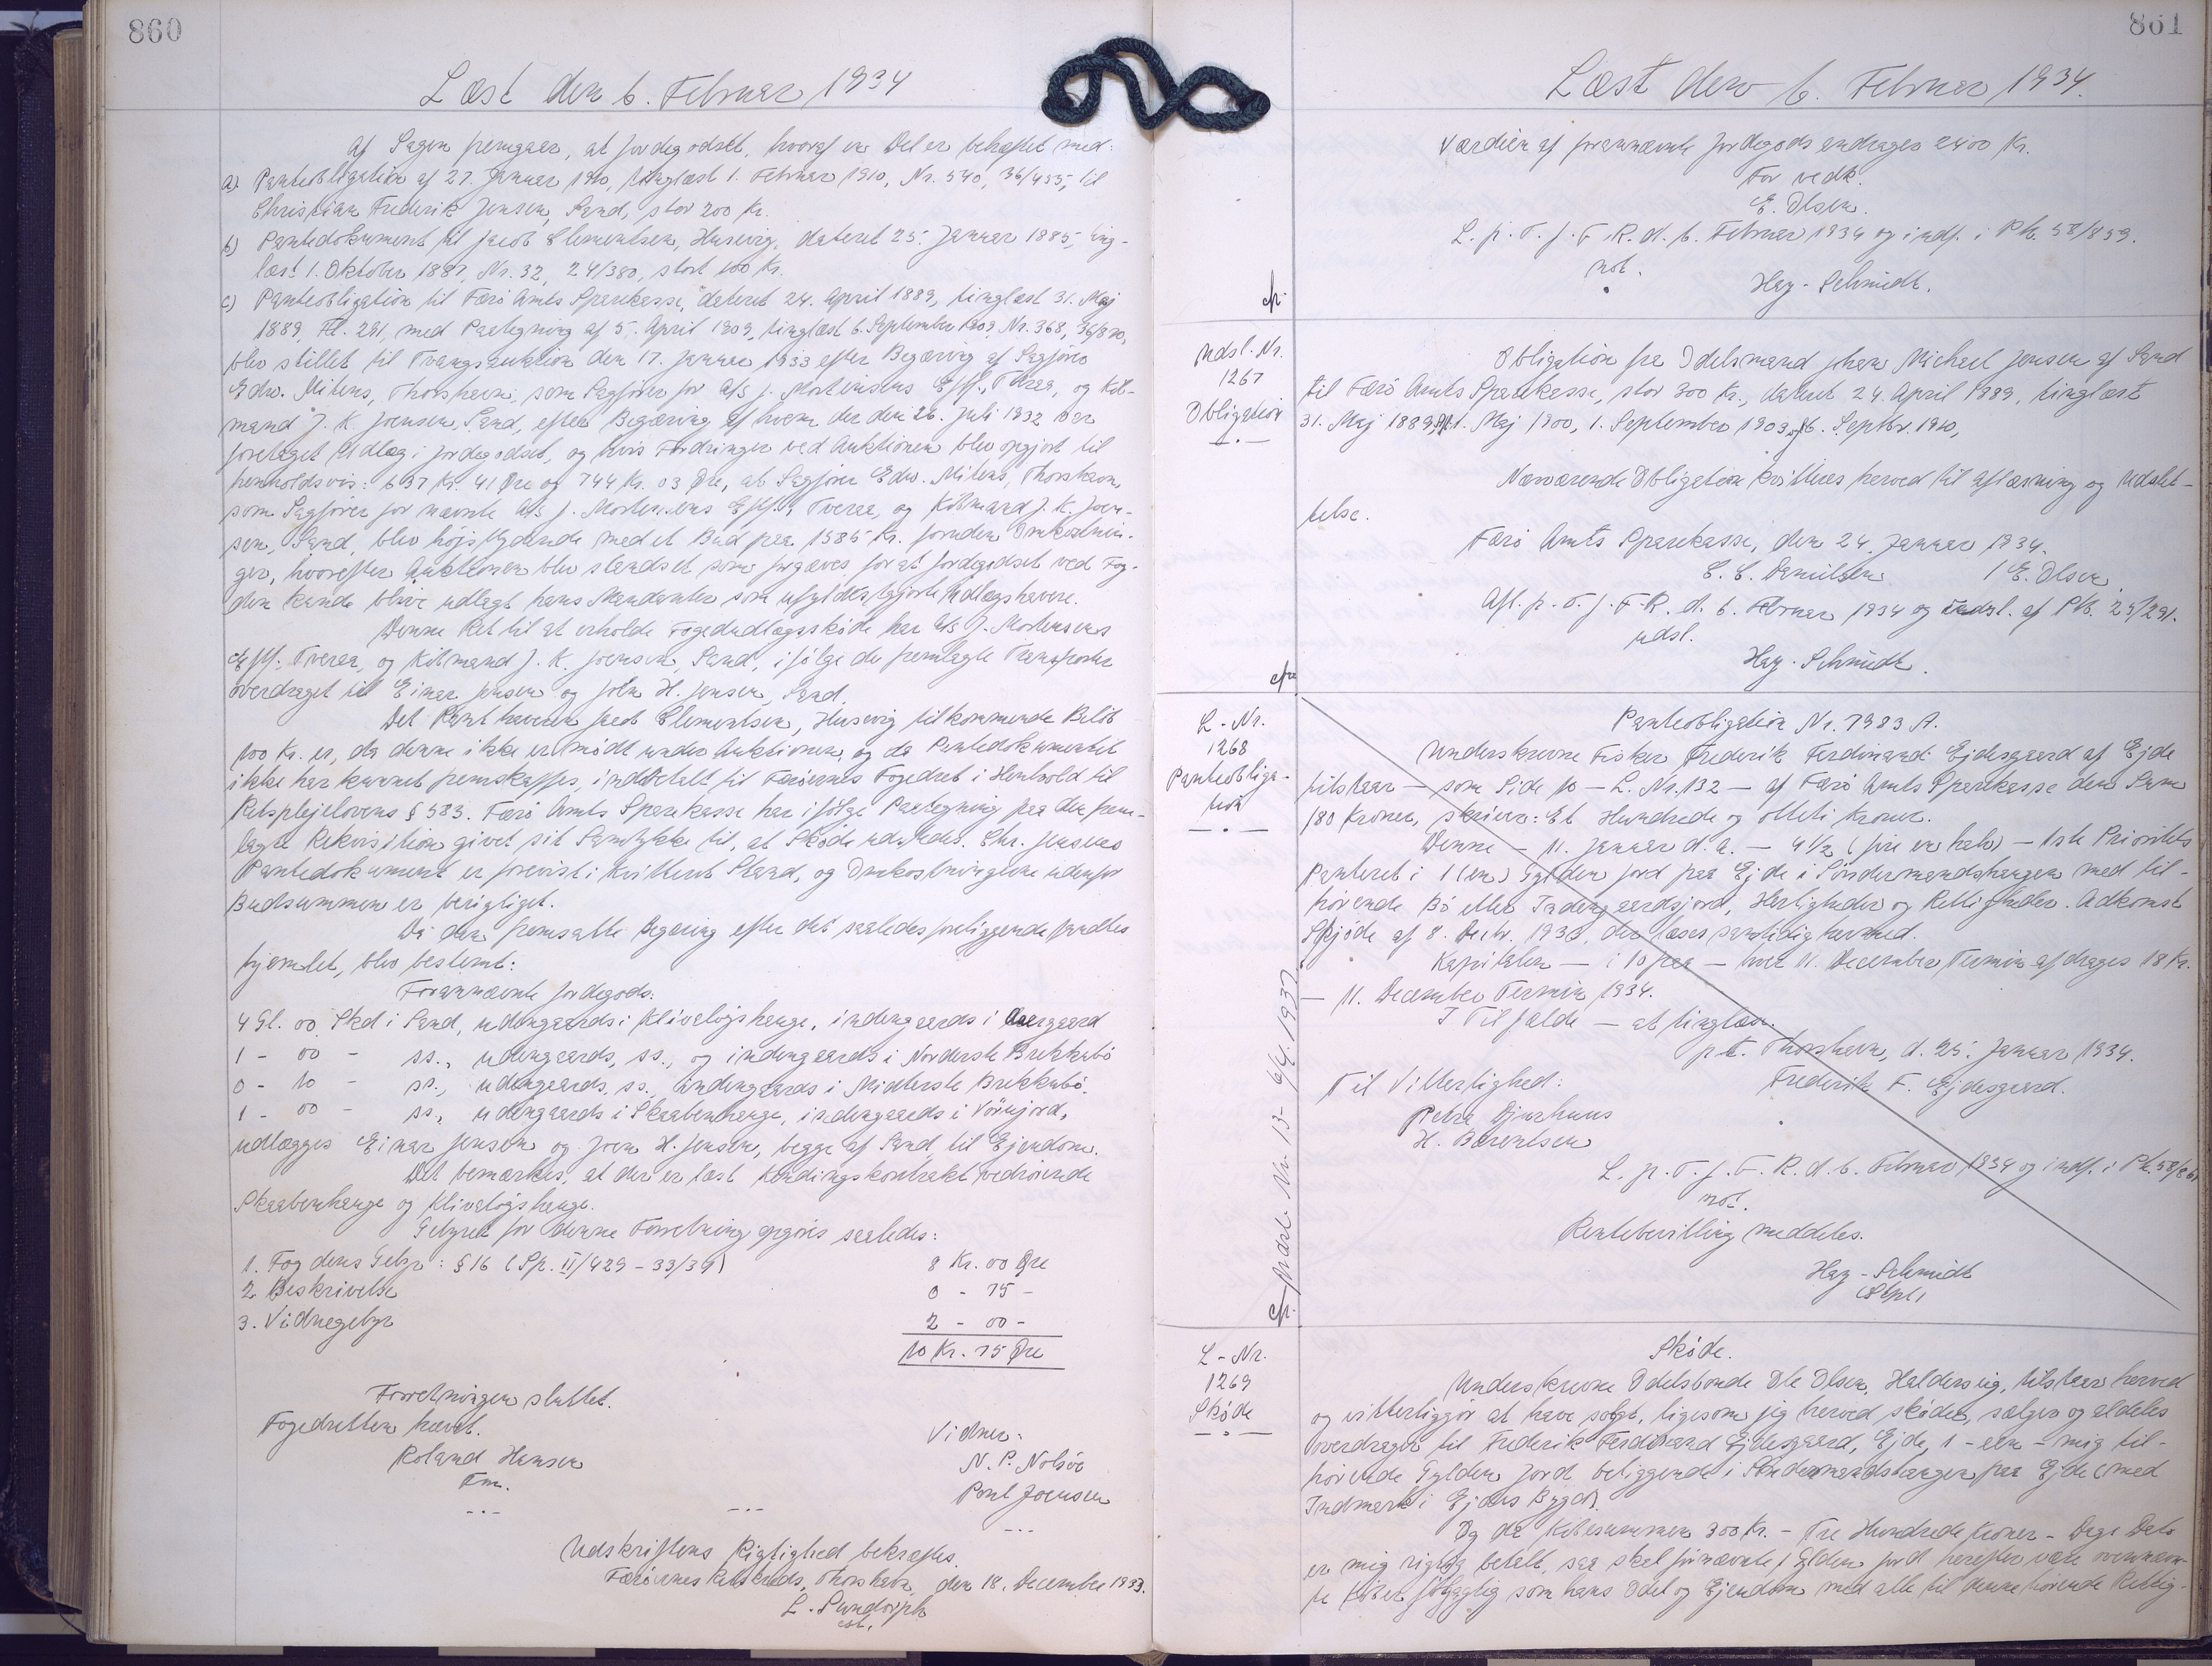 860
Læst den 6. Februar 1934
Af Sagen fremgaar, at Jordegodset, hvoraf en Del er behæftet med:
a) Panteobligation af 27. Januar 1910, tinglæst 1. Februar 1910, Nr. 540, 36/455, til
Christian Frederik Jensen, Sand, stor 200 Kr.
b) Pantedokument til Jacob Clementsen, Husevig, dateret 25. Januar 1885, ting-
læst 1. Oktober 1887, Nr. 32, 24/380, stort 100 Kr.
c) Panteobligation til Færø Amts Sparekasse, dateret 24. April 1889, tinglæst 31. Maj
1889, Fl. 291, med Paategning af 5. April 1909, tinglæst 6. September 1909, Nr. 368, 36/820,
blev stillet til Tvangsauktion den 17. Januar 1933 efter Begæring af Sagfører
Edw. Mitens, Thorshavn, som Sagfører for A/S J. Mortensens Eftf., Tveraa, og Køb-
mand J. K. Joensen, Sand, efter Begæring af hvem der den 26. Juli 1932 var
foretaget Udlæg i Jordegodset, og hvis Fordringer ved Auktionen blev opgjort til
henholdsvis: 637 Kr. 41 Øre og 744 Kr. 03 Øre, at Sagfører Edw. Mitens, Thorshavn,
som Sagfører for nævnte A/S J. Mortensens Eftf., Tveraa, og Købmand J. K. Joen-
sen, Sand, blev højstbydende med et Bud paa 1585 Kr. foruden Omkostnin-
ger, hvorefter Auktionen blev standset som forgæves for at Jordegodset ved Fog-
den kunde blive udlagt hans Mandanter som ufyldestgjorte Udlægshavere.
Denne Ret til at erholde Fogedudlægsskøde har A/S J. Mortensens
Eftf. Tveraa, og Købmand J. K. Joensen, Sand, ifølge de fremlagte Transporter
overdraget til Einar Jensen og John H. Jensen, Sand.
Det Panthaveren Jacob Clementsen, Husevig tilkommende Beløb
100 Kr. er, da denne ikke er mødt under Auktionen, og da Pantedokumentet
ikke har kunnet fremskaffes, indbetalt til Færøernes Fogedret i Henhold til
Retsplejelovens § 583. Færø Amts Sparekasse har ifølge Paategning paa den frem-
lagte Rekvisition givet sit Samtykke til, at Skøde udstedes. Chr. Jensens
Pantedokument er forevist i kvitteret Stand, og Omkostningerne udenfor
Budsummen er berigtiget.
Da den fremsatte Begæring efter det saaledes foreliggende fandtes
hjemlet, blev bestemt:
Forannævnte Jordegods:
4 Gl. 00 Skd i Sand, udengaards i Klivaløjshauge, indengaards i Aaergaard
1 - 00 - ss., udengaards, ss., og indengaards i Norderste Brekkubø
0 - 10 - ss., udengaards, ss., indengaards i Midterste Brekkubø
1 - 00 - ss., udengaards i Skaabenhauge, indengaards i Vörnjord,
udlægges Einar Jensen og Joen H. Jensen, begge af Sand, til Ejendom.
Det bemærkes, at der er læst Kendingskontrakt vedrørende
Skaabenhauge og Klivaløjshauge.
Gebyret for denne Forretning opgøres saaledes:
1. Fogdens Gebyr: § 16 (Sp. II/429 - 33/34) 8 Kr. 00 Øre
2 Beskrivelse 0 - 75 -
3. Vidnegebyr 2 - 00 -
10 Kr. 75 Øre
Forretningen sluttet.
Fogedretten hævet.
Roland Hansen
Fm.
Vidner:
N. P. Nolsøe
Poul Joensen
Udskriftens Rigtighed bekræftes.
Færøernes Retskreds, Thorshavn, den 18. December 1933.
L. Sundorph
cst.
861
Læst den 6. Februar 1934.
Værdien af forannævnte Jordegods andrages 2400 Kr.
For vedk.
E. Olsen.
L. p. T. f. F. R. d. 6. Februar 1934 og indf. i Ptb. 58/859.
not.
Hay-Schmidt.
Udsl. Nr.
1267
Obligation
Obligation fra Odelsmand Johan Michael Jensen af Sand
til Færø Amts Sparekasse, stor 300 Kr., dateret 24. April 1889, tinglæst
31. Maj 1889, 1. Maj 1900, 1. September 1909, og 6. Septbr. 1910,
Nærværende Obligation kvitteres herved til Aflæsning og Udslet-
telse.
Færø Amts Sparekasse, den 24. Januar 1934.
C. C. Danielsen / E. Olsen
Afl. p. T. f. F. R. d. 6. Februar 1934 og udsl. af Ptb. 25/291.
udsl.
Hay-Schmidt.
L-Nr.
1268
Panteobliga-
tion
Panteobligation Nr. 7983 A.
Underskrevne Fisker Frederik Ferdinand Ejdesgaard af Ejde
tilstaar — som Side 10 — L. Nr. 132 — af Færø Amts Sparekasse den Sum
180 Kroner, skriver: Et Hundrede og otteti Kroner.
Denne — 11. Januar d. A. — 4 1/2 (fire en halv) — 1ste Prioritets
Panteret i 1 (en) Gylden Jord paa Ejde i Söndermandshaugen med til-
hørende Bø eller Indengaardsjord, Herligheder og Rettigheder. Adkomst
Skjøde af 8. Decbr. 1933, der læses samtidig hermed.
Kapitalen — i 10 paa — hver 11. December Termin afdrages 18 Kr.
— 11. December Termin 1934.
I Tilfælde — at tinglæse.
p. t. Thorshavn, d. 25. Januar 1934.
Til Vitterlighed:
Frederik F. Ejdesgaard.
Petra Djurhuus
H. Berentsen
L. p. T. f. F. R. d. 6. Februar 1934 og indf. i Ptb. 58/861
not.
Rentebevilling meddeles.
Hay-Schmidt
L-Nr.
1269
Skøde
Skøde.
Underskrevne Odelsbonde Ole Olsen, Haldersvig, tilstaar herved
og vitterliggør at have solgt, ligesom jeg herved skøder, sælger og aldeles
overdrager til Frederik Ferdinand Ejdesgaard, Ejde, 1 - een - mig til-
hørende Gylden Jord beliggende i Söndermandshaugen paa Ejde (med
Indmark i Ejdes Bygd).
Og da Købesummen 300 Kr. - Tre Hundrede Kroner - Dags Dato
er mig rigtig betalt, saa skal førnævnte 1 Gylden Jord herefter være ovennævn-
te Køber følgagtig som hans Odel og Ejendom med alle til denne hørende Rettig-